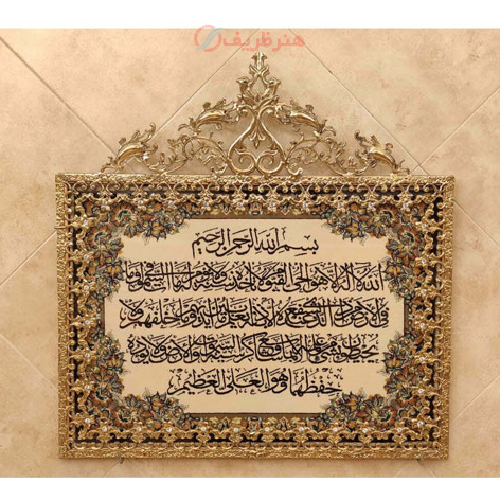 هنر ظریف
بسم الله الرحمن الرحيم
الله لا اله الا هو الحي القيوم لا تاخذه سنة ولا نوم له ما في السموات وما
في الارض من ذا الذي يشفع عنده الا باذنه يعلم ما بين ايديهم وما خلفهم ولا
يحيطون بشيء من علمه الا بما شاء وسع كرسيه السموات والارض ولا يؤده
حفظهما وهو العلي العظيم